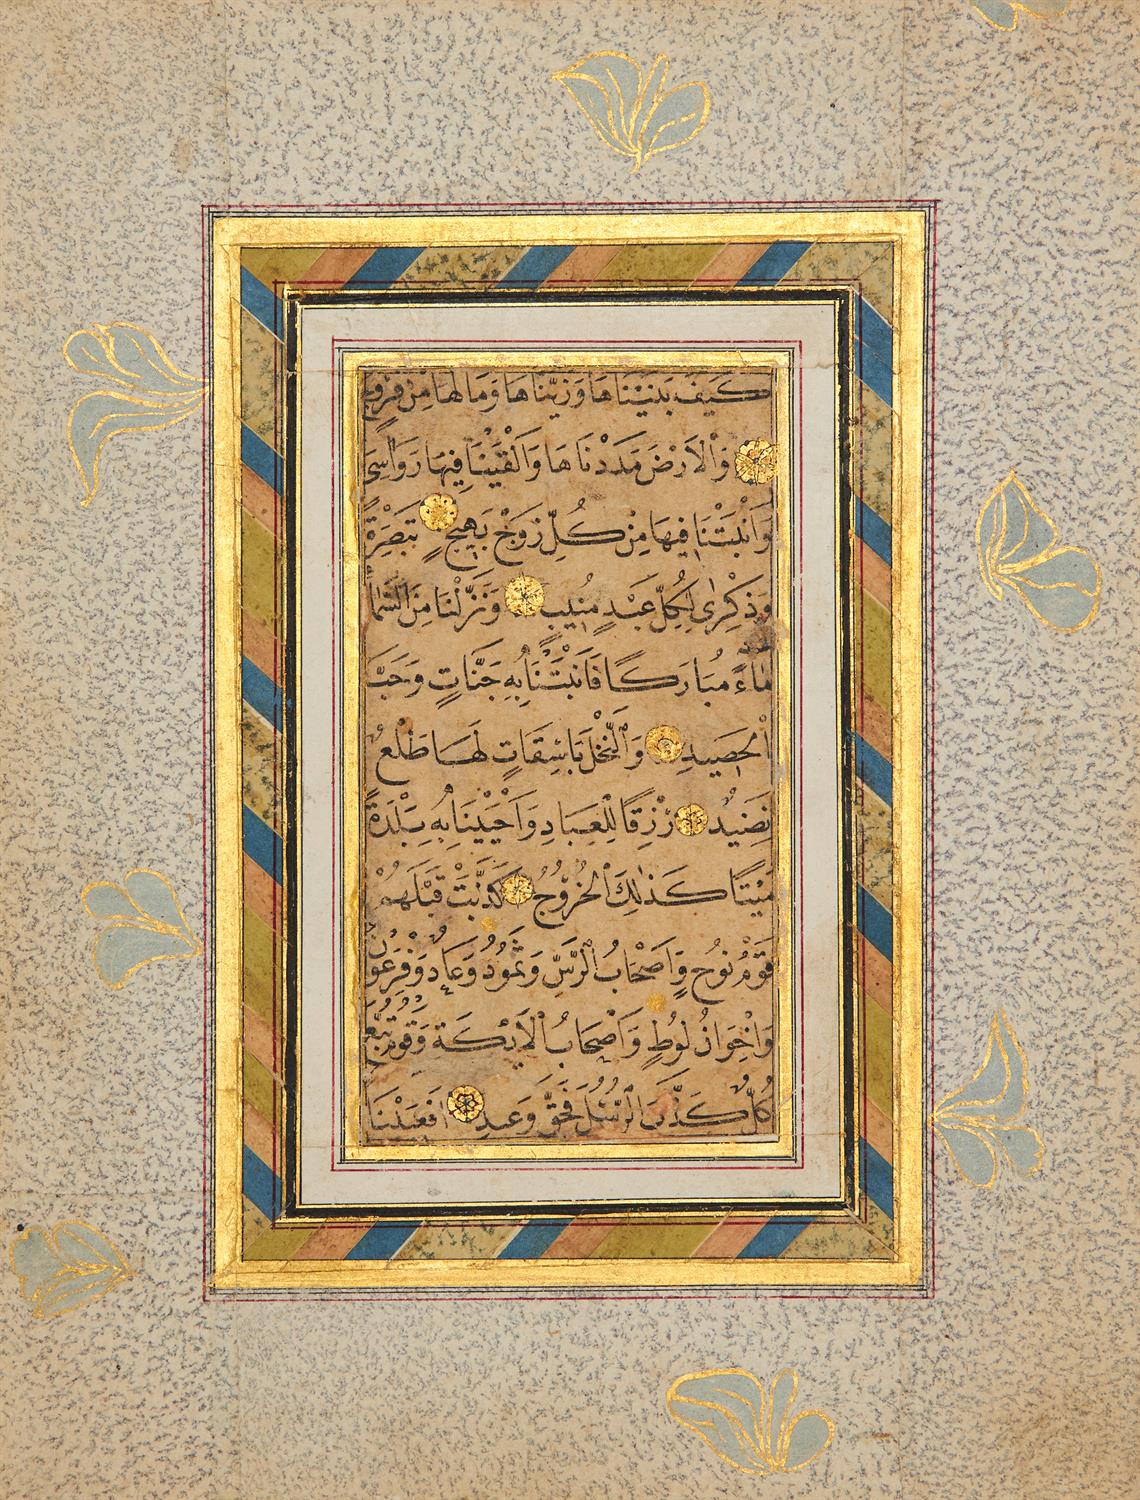 كَيْفَ بَنَيْنَاهَا وَزَيَّنَّاهَا وَمَا لَهَا مِنْ فُرُوجٍ
وَالْاَرْضَ مَدَدْنَاهَا وَاَلْقَيْنَا فِيهَا رَوَاسِيَ
وَاَنْبَتْنَا فِيهَا مِنْ كُلِّ زَوْجٍ بَهِيجٍ تَبْصِرَةً
وَذِكْرٰى لِكُلِّ عَبْدٍ مُنِيبٍ وَنَزَّلْنَا مِنَ السَّمَاءِ
مَاءً مُبَارَكًا فَاَنْبَتْنَا بِهِ جَنَّاتٍ وَحَبَّ
الْحَصِيدِ وَالنَّخْلَ بَاسِقَاتٍ لَهَا طَلْعٌ
نَضِيدٌ رِزْقًا لِلْعِبَادِ وَاَحْيَيْنَا بِهِ بَلْدَةً
مَيْتًا كَذٰلِكَ الْخُرُوجُ كَذَّبَتْ قَبْلَهُمْ
قَوْمُ نُوحٍ وَاَصْحَابُ الرَّسِّ وَثَمُودُ وَعَادٌ وَفِرْعَوْنُ
وَاِخْوَانُ لُوطٍ وَاَصْحَابُ الْاَيْكَةِ وَقَوْمُ تُبَّعٍ
كُلٌّ كَذَّبَ الرُّسُلَ فَحَقَّ وَعِيدِ اَفَعَيِينَا